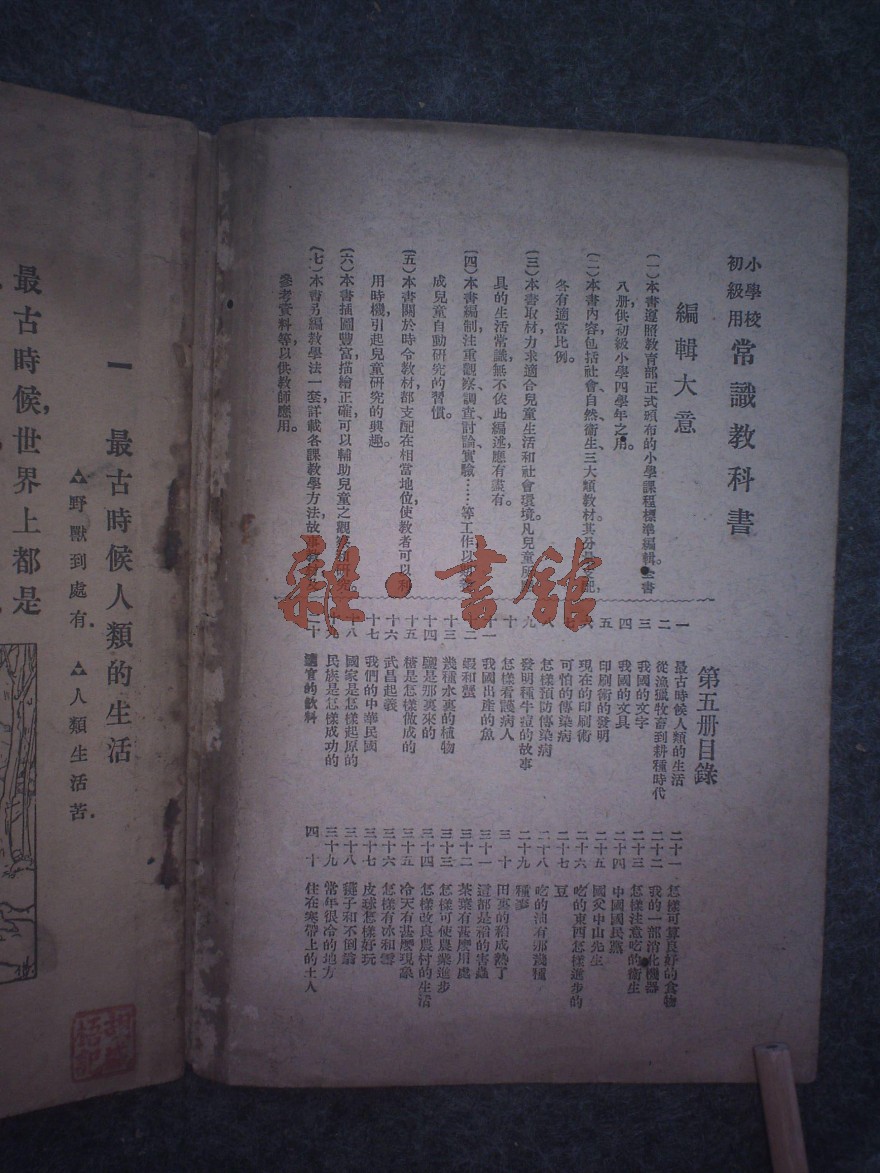 小學校
初級用
常識教科書
編輯大意
(一)本書遵照教育部正式頒布的小學課程標準編輯,全書
八册,供初級小學四學年之用。
(二)本書內容,包括社會、自然、衞生三大類教材,其分
冬有適當比例。
(三)本書取材,力求適合兒童生活和社會環境。凡兒童應
具的生活常識,無不依此編述,應有盡有。
(四)本書編制,注重觀察、調查、討論、實驗……等工作,以
成兒童自動研究的習慣。
(五)本書關於時令教材,都支配在相當地位,使教者可以利
用時機,引起兒童研究的興趣。
(六)本書插圖豐富,描繪正確,可以輔助兒童之觀察和研究。
(七)本書另編教學法一套,詳載各課教學方法,故事
參考資料等,以供教師應用。
第五册目錄
一 最古時候人類的生活
二 從漁獵牧畜到耕種時代
三 我國的文字
四 我國的文具
五 印刷術的發明
現在的印刷術
可怕的傳染病
怎樣預防傳染病
九 發明種牛痘的故事
十 怎樣看護病人
十一 我國出產的魚
蝦和蟹
十三 幾種水裏的植物
十四 鹽是那裏來的
十五 糖是怎樣做成的
十六 武昌起義
十七 我們的中華民國
十八 國家是怎樣起原的
十九 民族是怎樣成功的
二十 適宜的飲料
二十一 怎樣可算良好的食物
二十二 我的一部消化機器
二十三 怎樣注意吃的衞生
二十四 中國國民黨
二十五 國父中山先生
二十六 吃的東西怎樣進步的
二十七 豆
二十八 吃的油有那幾種
二十九 種
三十 田裏的稻成熟了
三十一 這都是稻的害蟲
三十二 茶葉有甚麼用處
三十三 怎樣可使農業進步
三十四 怎樣改良農村的生活
三十五 冷天有甚麼現象
三十六 怎樣有冰和雪
三十七 皮球怎樣好玩
三十八 毽子和不倒翁
三十九 常年很冷的地方
四十 住在寒帶上的土人
雜·書館
一 最古時候人類的生活
△野獸到處有。△人類生活苦。
最古時候,世界上都是